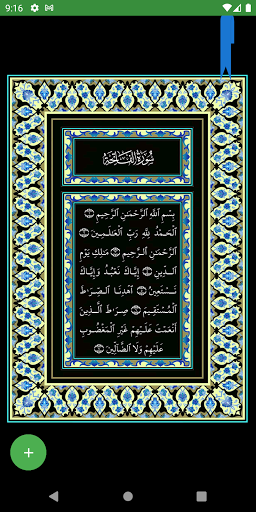 9:16
سُورَةُ الفَاتِحَةِ
بِسْمِ اللَّهِ الرَّحْمَٰنِ الرَّحِيمِ ۝
الْحَمْدُ لِلَّهِ رَبِّ الْعَالَمِينَ ۝
الرَّحْمَٰنِ الرَّحِيمِ ۝ مَالِكِ يَوْمِ
الدِّينِ ۝ إِيَّاكَ نَعْبُدُ وَإِيَّاكَ
نَسْتَعِينُ ۝ اهْدِنَا الصِّرَاطَ
الْمُسْتَقِيمَ ۝ صِرَاطَ الَّذِينَ
أَنْعَمْتَ عَلَيْهِمْ غَيْرِ الْمَغْضُوبِ
عَلَيْهِمْ وَلَا الضَّالِّينَ ۝